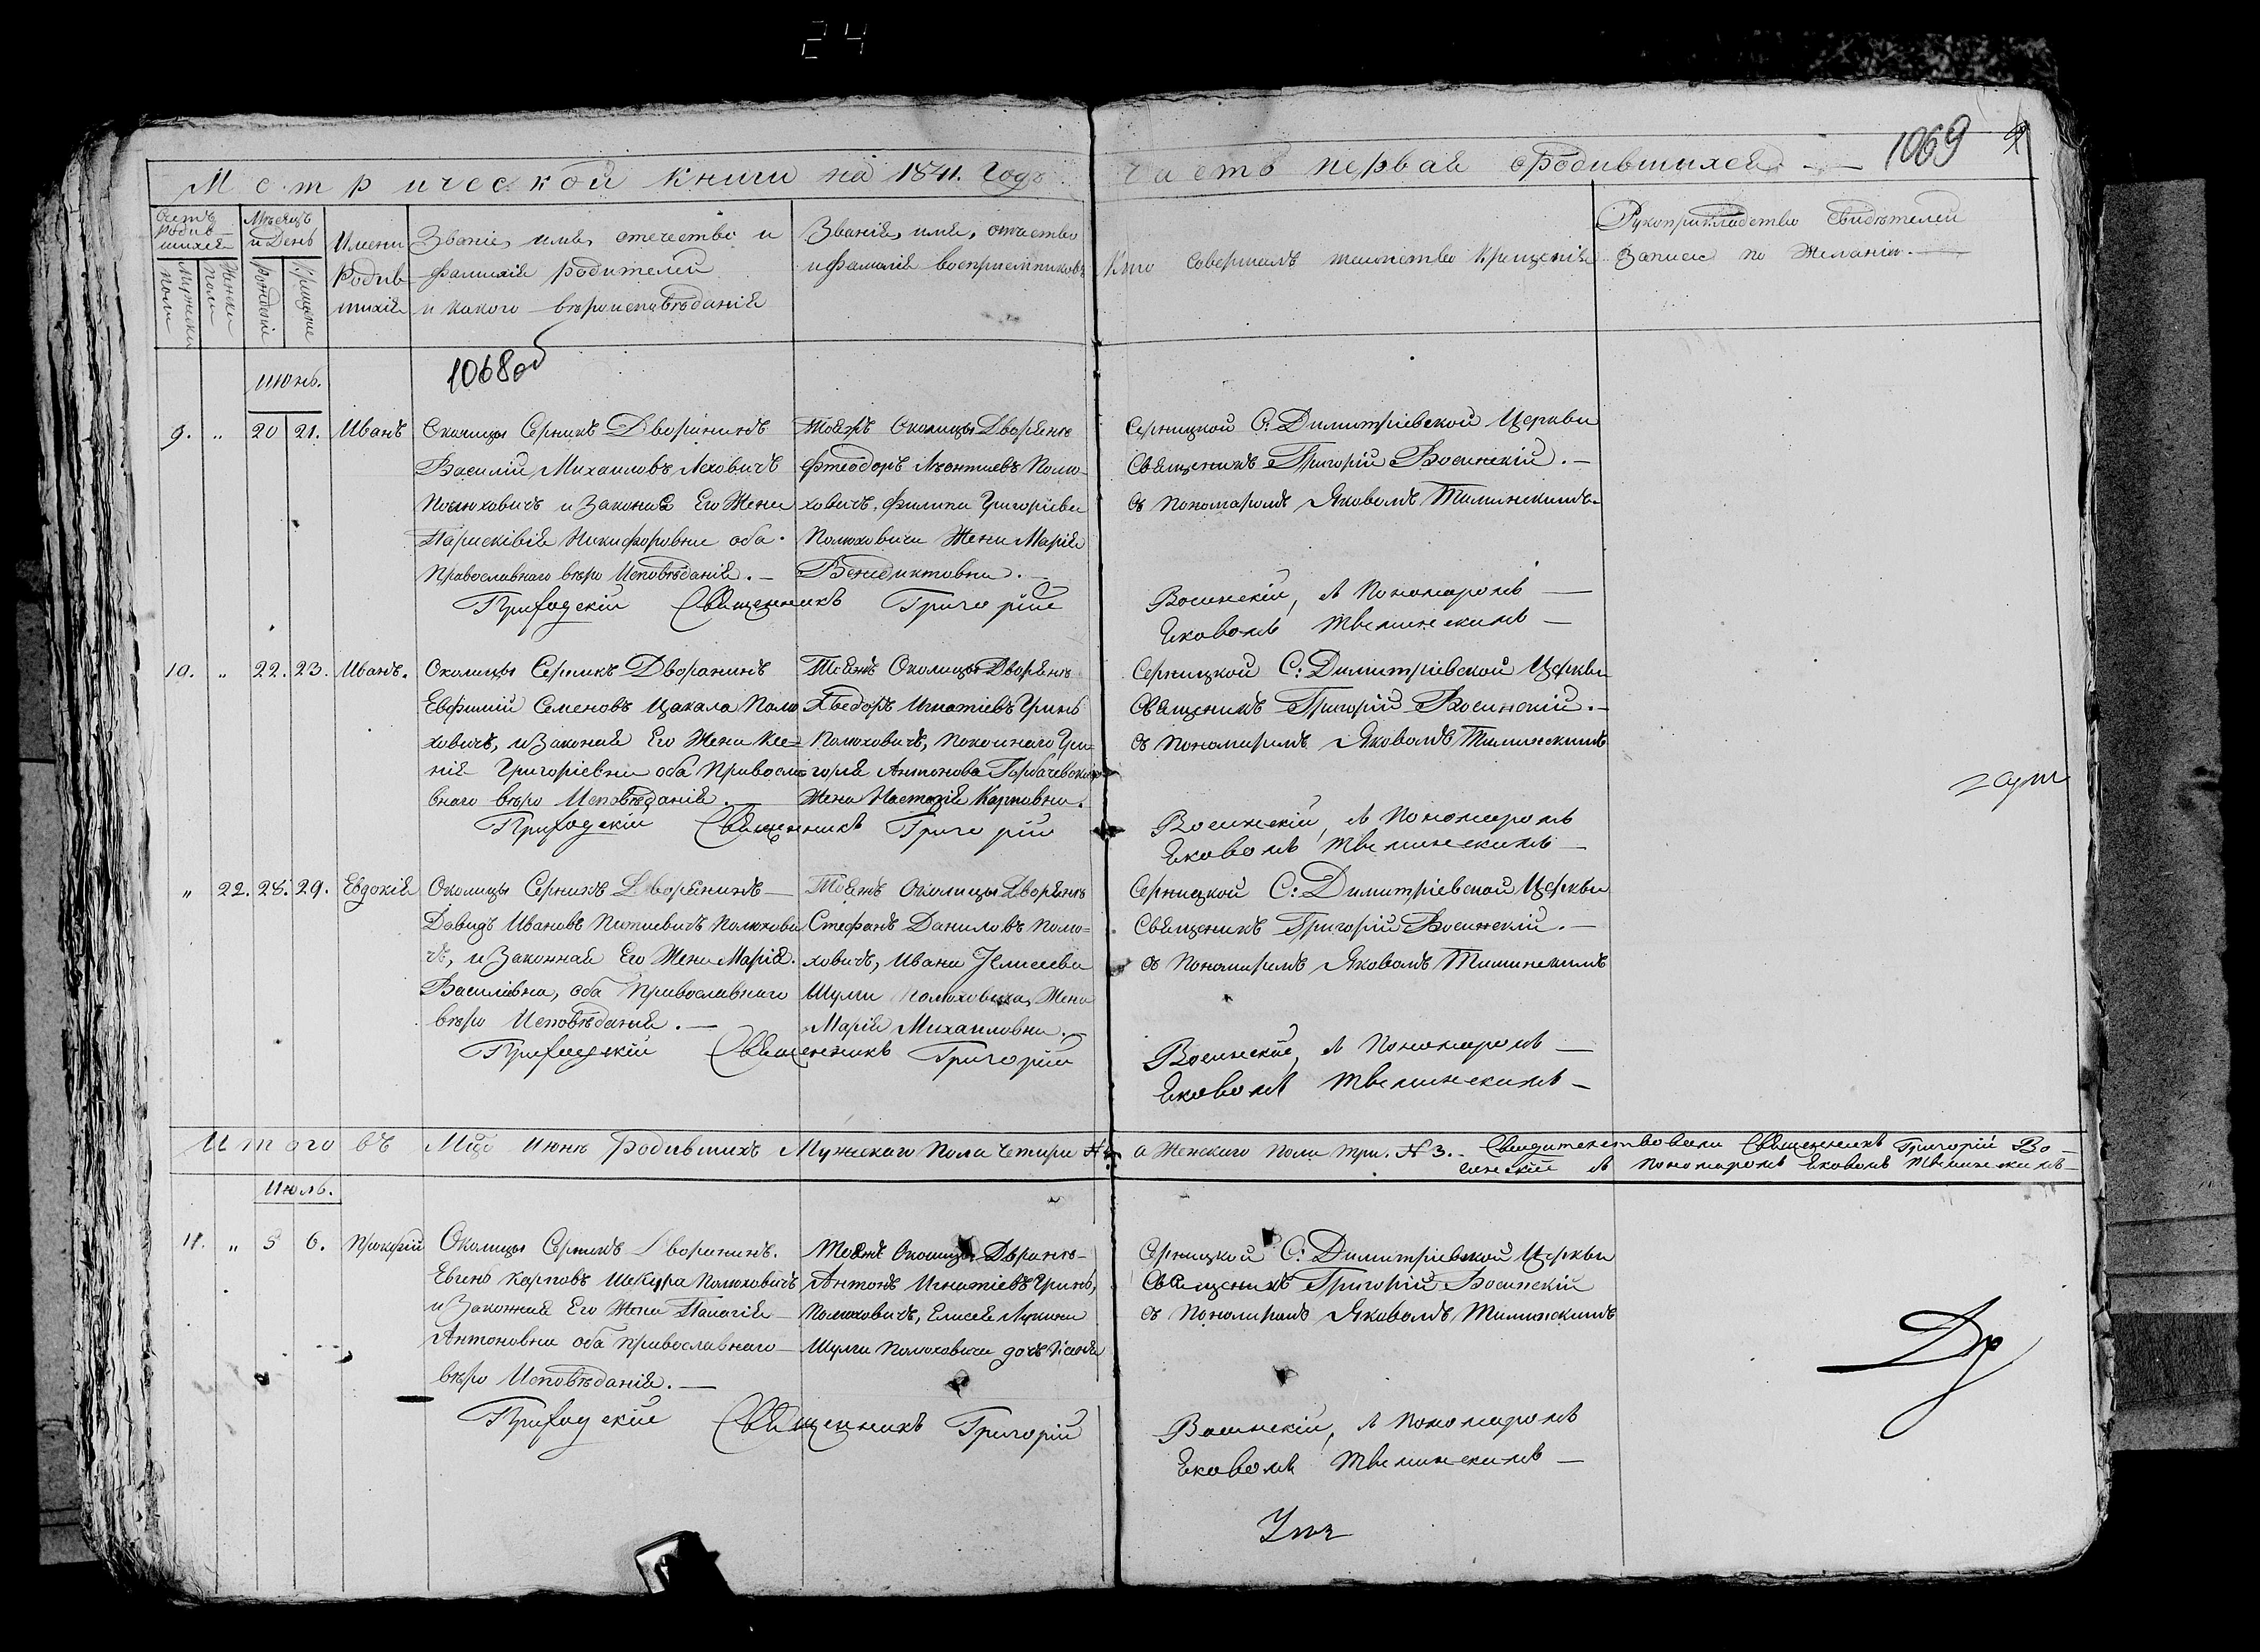 24
1069
Метрической книги на 1841. Годъ часть первая о родившихся
Счетъ родившихся
Мужеска пола
Женска пола
Мѣсяцъ и День
Рожденіе
Крещеніе
Имена родившихся
Званіе, имя, отечество и
фамилія родителей
и какого вѣроисповѣданія
Званія, имя, отчество
и фамилія восприемниковъ
Кто совершалъ таинство Крещенія
Рукоприкладство Свидѣтелей
Записи по Желанію.
1068об
Июнь.
9. " 20 21. Иванъ
Околицы Серникъ Дворянинъ
Василій Михаиловъ Лєховичъ
Полюховичъ и Законная Его Жена
Параскивія Никифоровна оба
Православнаго вѣро Исповѣданія.
Тоежъ Околицы Дворяне
Фтеодоръ Леонтиевъ Полю-
ховичъ, Филипа Григоріева
Полюховича Жена Марія
Бенедиктовна.
Серницкой С. Димитріевской Церкви
Священикъ Григорій Восинскій.
съ Пономаромъ Яковомъ Тиминскимъ
Приходскій Священникъ Григорій Восинскій, съ Пономаромъ
Яковомъ Тиминскимъ
10. " 22. 23. Иванъ.
Околицы Серникъ Дворанинъ
Евфимій Семеновъ Цакало Полю
ховичъ, и Законная Его Жена Ксе=
нія Григоріевна оба Православ
внаго вѣро Исповѣданія.
Тоежъ Околицы Дворяне
Фтеодоръ Игнатіевъ Гринь
Полюховичъ, Покоинаго Гри=
горія Антонова Горбачевского
Жена Настазія Карповна.
Серницкой С: Димитріевской Церкви
Священикъ Григорій Восинскій.
съ Пономаромъ Яковомъ Тиминскимъ
Приходскій Священникъ Григорій Восинскій, съ Пономаромъ
Яковомъ Тиминскимъ
" 22. 28. 29. Евдокія
Околицы Серникъ Дворянинъ
Давидъ Ивановъ Полюхови
чъ, и Законная Его Жена Марія
Василіевна, оба Православнаго
вѣро Исповѣданія.
Тоежъ Околицы Дворяне
Стефанъ Даниловъ Полю=
ховичъ, Ивана Елисеева
Шулги Полюховича, Жена
Марія Михаиловна.
Серницкой С: Димитріевской Церкви
Священикъ Григорій Восинскій.
съ Пономаромъ Яковомъ Тиминскимъ
Приходскій Священникъ Григорій Восинскій, съ Пономаромъ
Яковомъ Тиминскимъ
Итого въ Мцѣ Июнѣ Родившихъ Мужескаго Пола Четири а Женскаго Пола три. №3. Свидителствовали Священникъ Григорій Во-
синскій съ Пономаромъ Яковомъ Тиминскимъ
Июль.
11. " 5 6. Прокофій
Околицы Серникъ Дворанинъ.
Евгень Карповъ Шекура Полюховичъ
и Законная Его Жена Палагія
Антоновна оба Православнаго
вѣро Исповѣданія.
Тоежъ Околицы Дворяне
Антонъ Игнатіевъ Гринь,
Полюховичъ, Елисея Лукина
Шулги Полюховича дочь
Серницкой С: Димитріевской Церкви
Священикъ Григорій Восинскій
съ Пономаромъ Яковомъ Тиминскимъ
Приходскій Священникъ Григорій Восинскій, съ Пономаромъ
Яковомъ Тиминскимъ